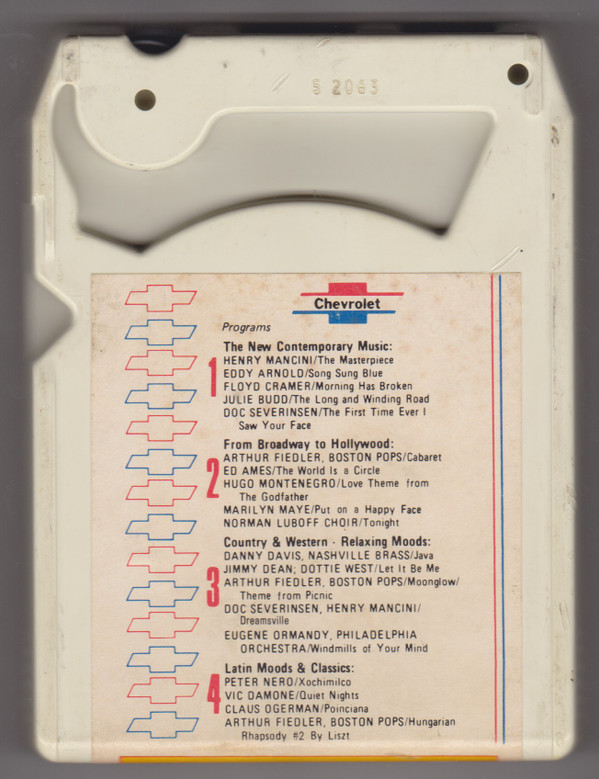 S 2063
Chevrolet
Programs
1
The New Contemporary Music:
HENRY MANCINI/The Masterpiece
EDDY ARNOLD/Song Sung Blue
FLOYD CRAMER/Morning Has Broken
JULIE BUDD/The Long and Winding Road
DOC SEVERINSEN/The First Time Ever I
Saw Your Face
2
From Broadway to Hollywood:
ARTHUR FIEDLER, BOSTON POPS/Cabaret
ED AMES/The World Is a Circle
HUGO MONTENEGRO/Love Theme from
The Godfather
MARILYN MAYE/Put on a Happy Face
NORMAN LUBOFF CHOIR/Tonight
3
Country & Western - Relaxing Moods:
DANNY DAVIS, NASHVILLE BRASS/Java
JIMMY DEAN; DOTTIE WEST/Let It Be Me
ARTHUR FIEDLER, BOSTON POPS/Moonglow/
Theme from Picnic
DOC SEVERINSEN, HENRY MANCINI/
Dreamsville
EUGENE ORMANDY, PHILADELPHIA
ORCHESTRA/Windmills of Your Mind
4
Latin Moods & Classics:
PETER NERO/Xochimilco
VIC DAMONE/Quiet Nights
CLAUS OGERMAN/Poinciana
ARTHUR FIEDLER, BOSTON POPS/Hungarian
Rhapsody #2 By Liszt